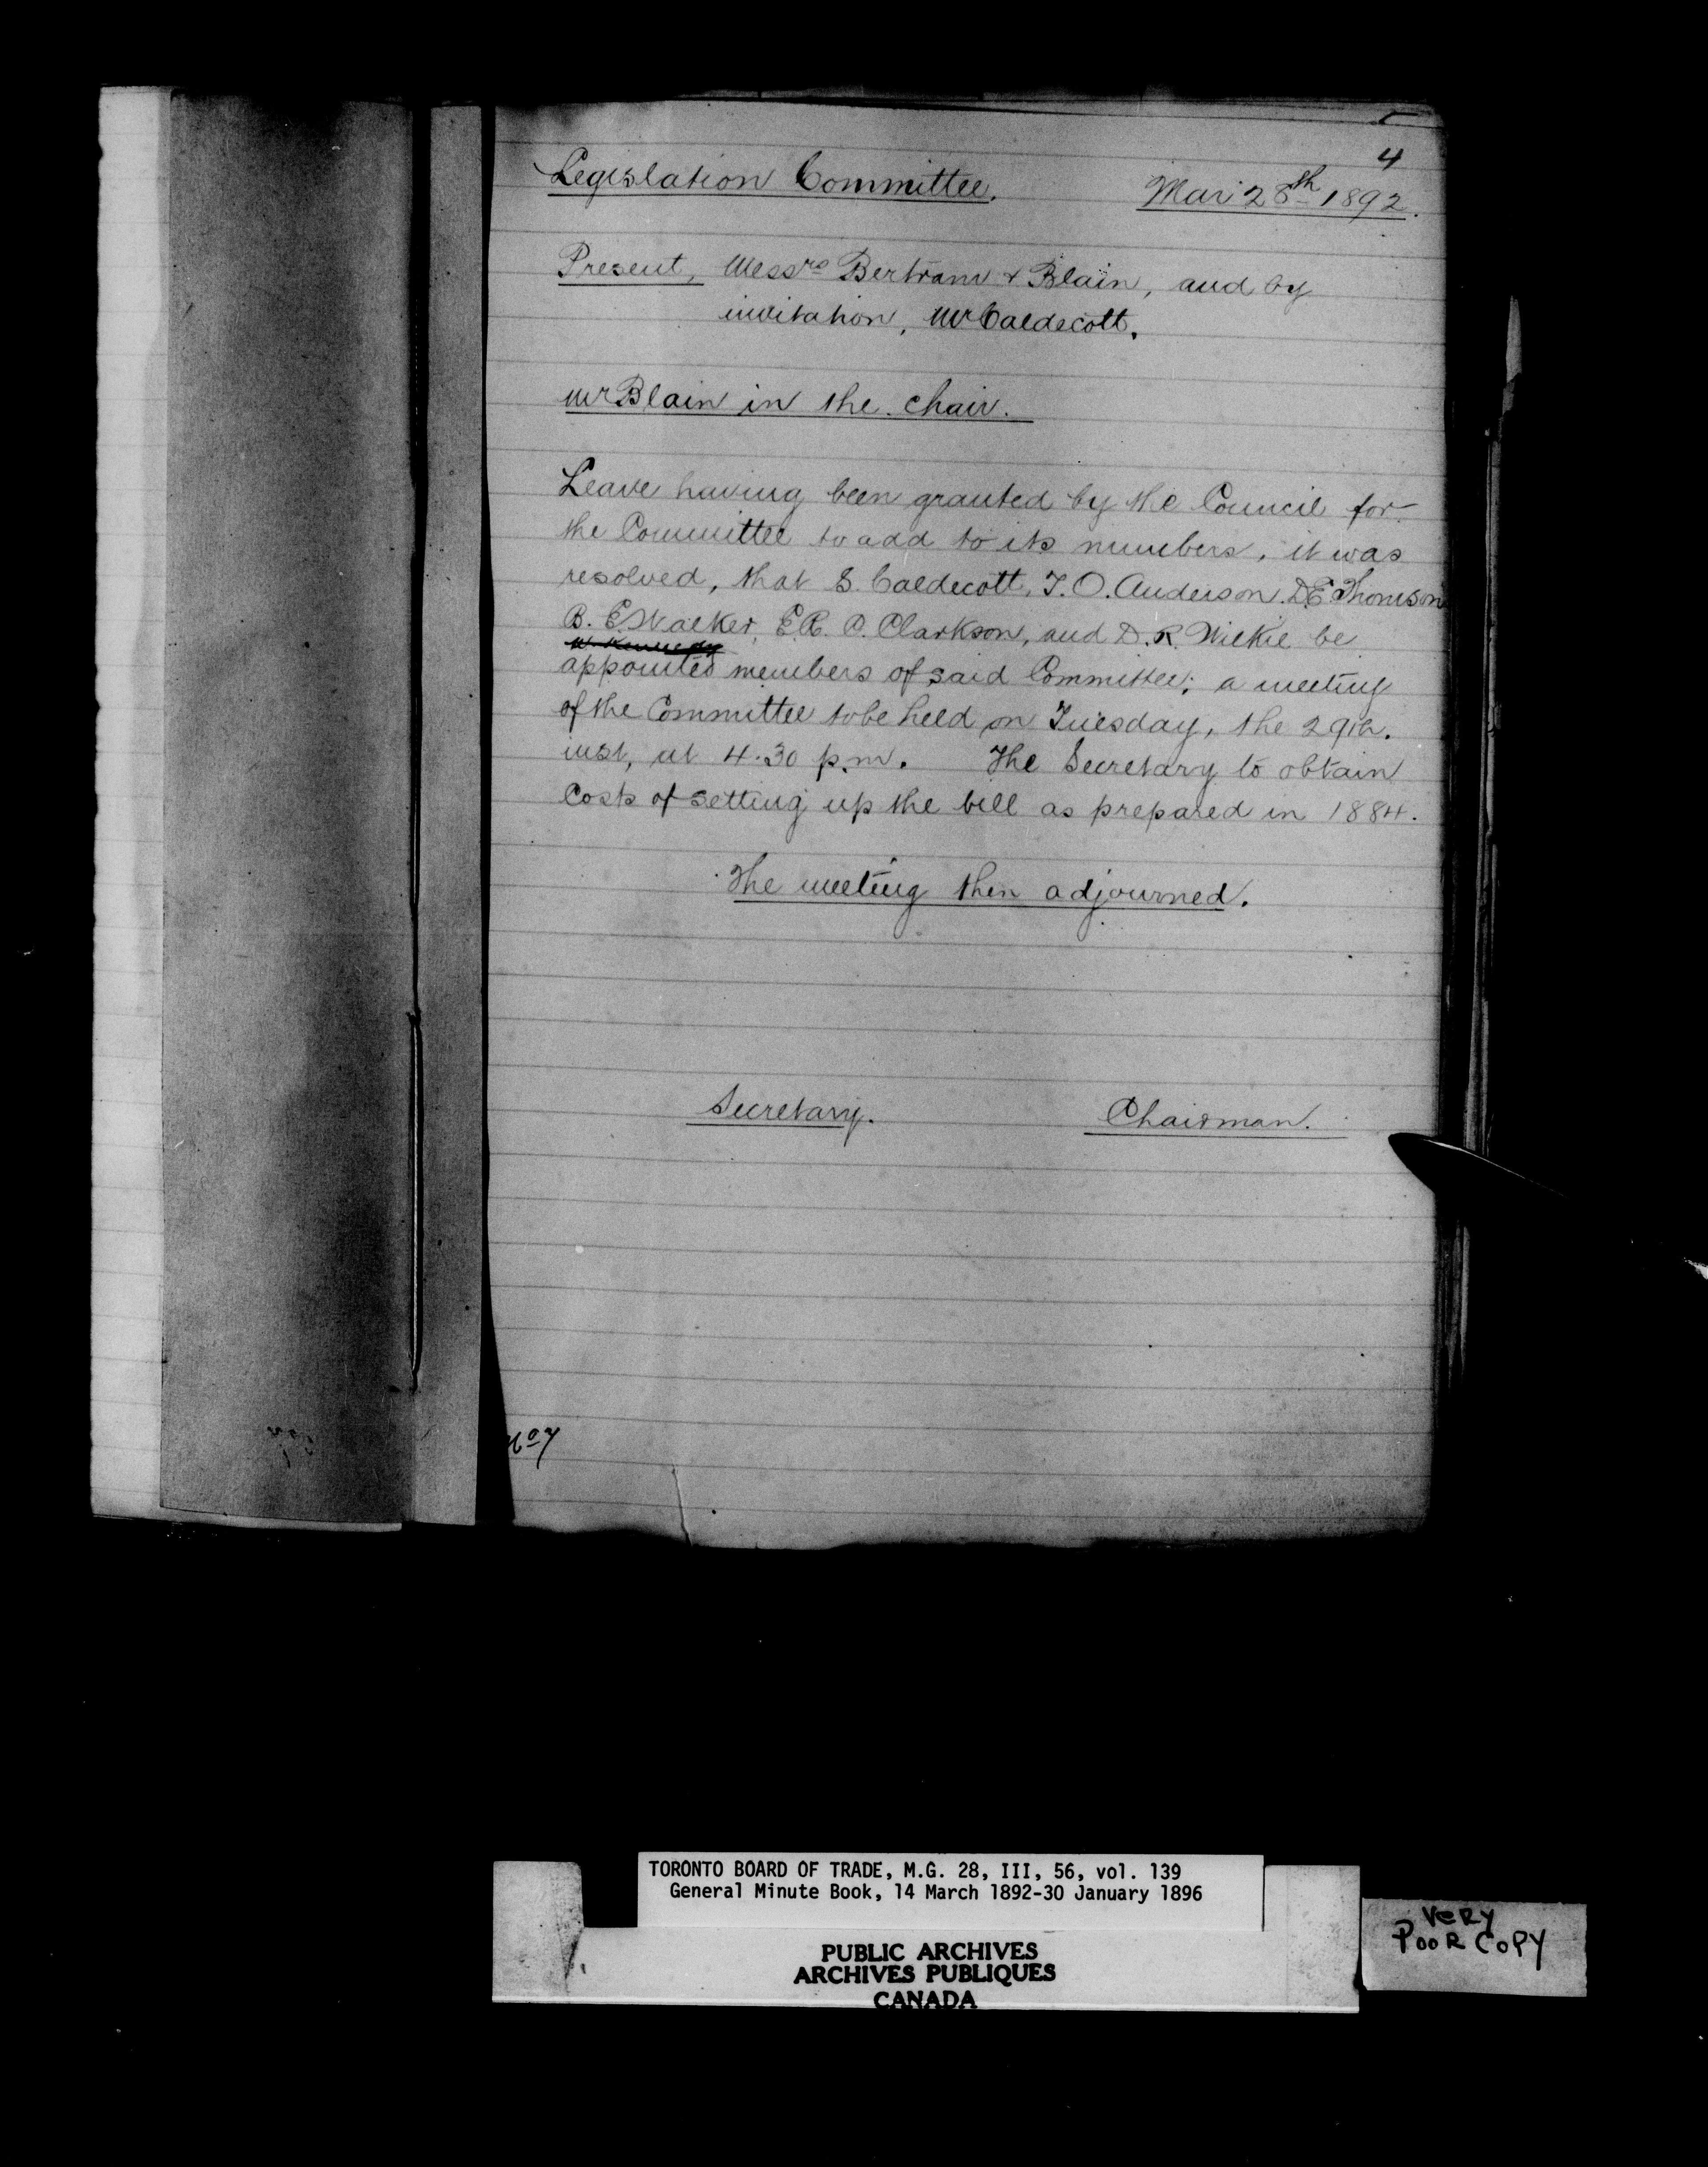 4
Legislation Committee. Mar 28th 1892.
Present, Messrs Bertram & Blain, and by
invitation, Mr Caldecott.
Mr Blain in the chair.
Leave having been granted by the Council for
the Committee to add to its numbers, it was
resolved, that S. Caldecott, T. O. Anderson. D.E. Thomson
B. E. Walker, E.R. C. Clarkson, and D. R. Wilkie be
W. Kennedy
appointed members of said Committee; a meeting
of the Committee to be held on Tuesday, the 29th.
inst, at 4.30 p.m. The Secretary to obtain
Costs of setting up the bill as prepared in 1884.
The meeting then adjourned.
Secretary. Chairman.
No 7
TORONTO BOARD OF TRADE, M.G. 28, III, 56, vol. 139
General Minute Book, 14 March 1892-30 January 1896
PUBLIC ARCHIVES
ARCHIVES PUBLIQUES
CANADA
VERY
POOR COPY